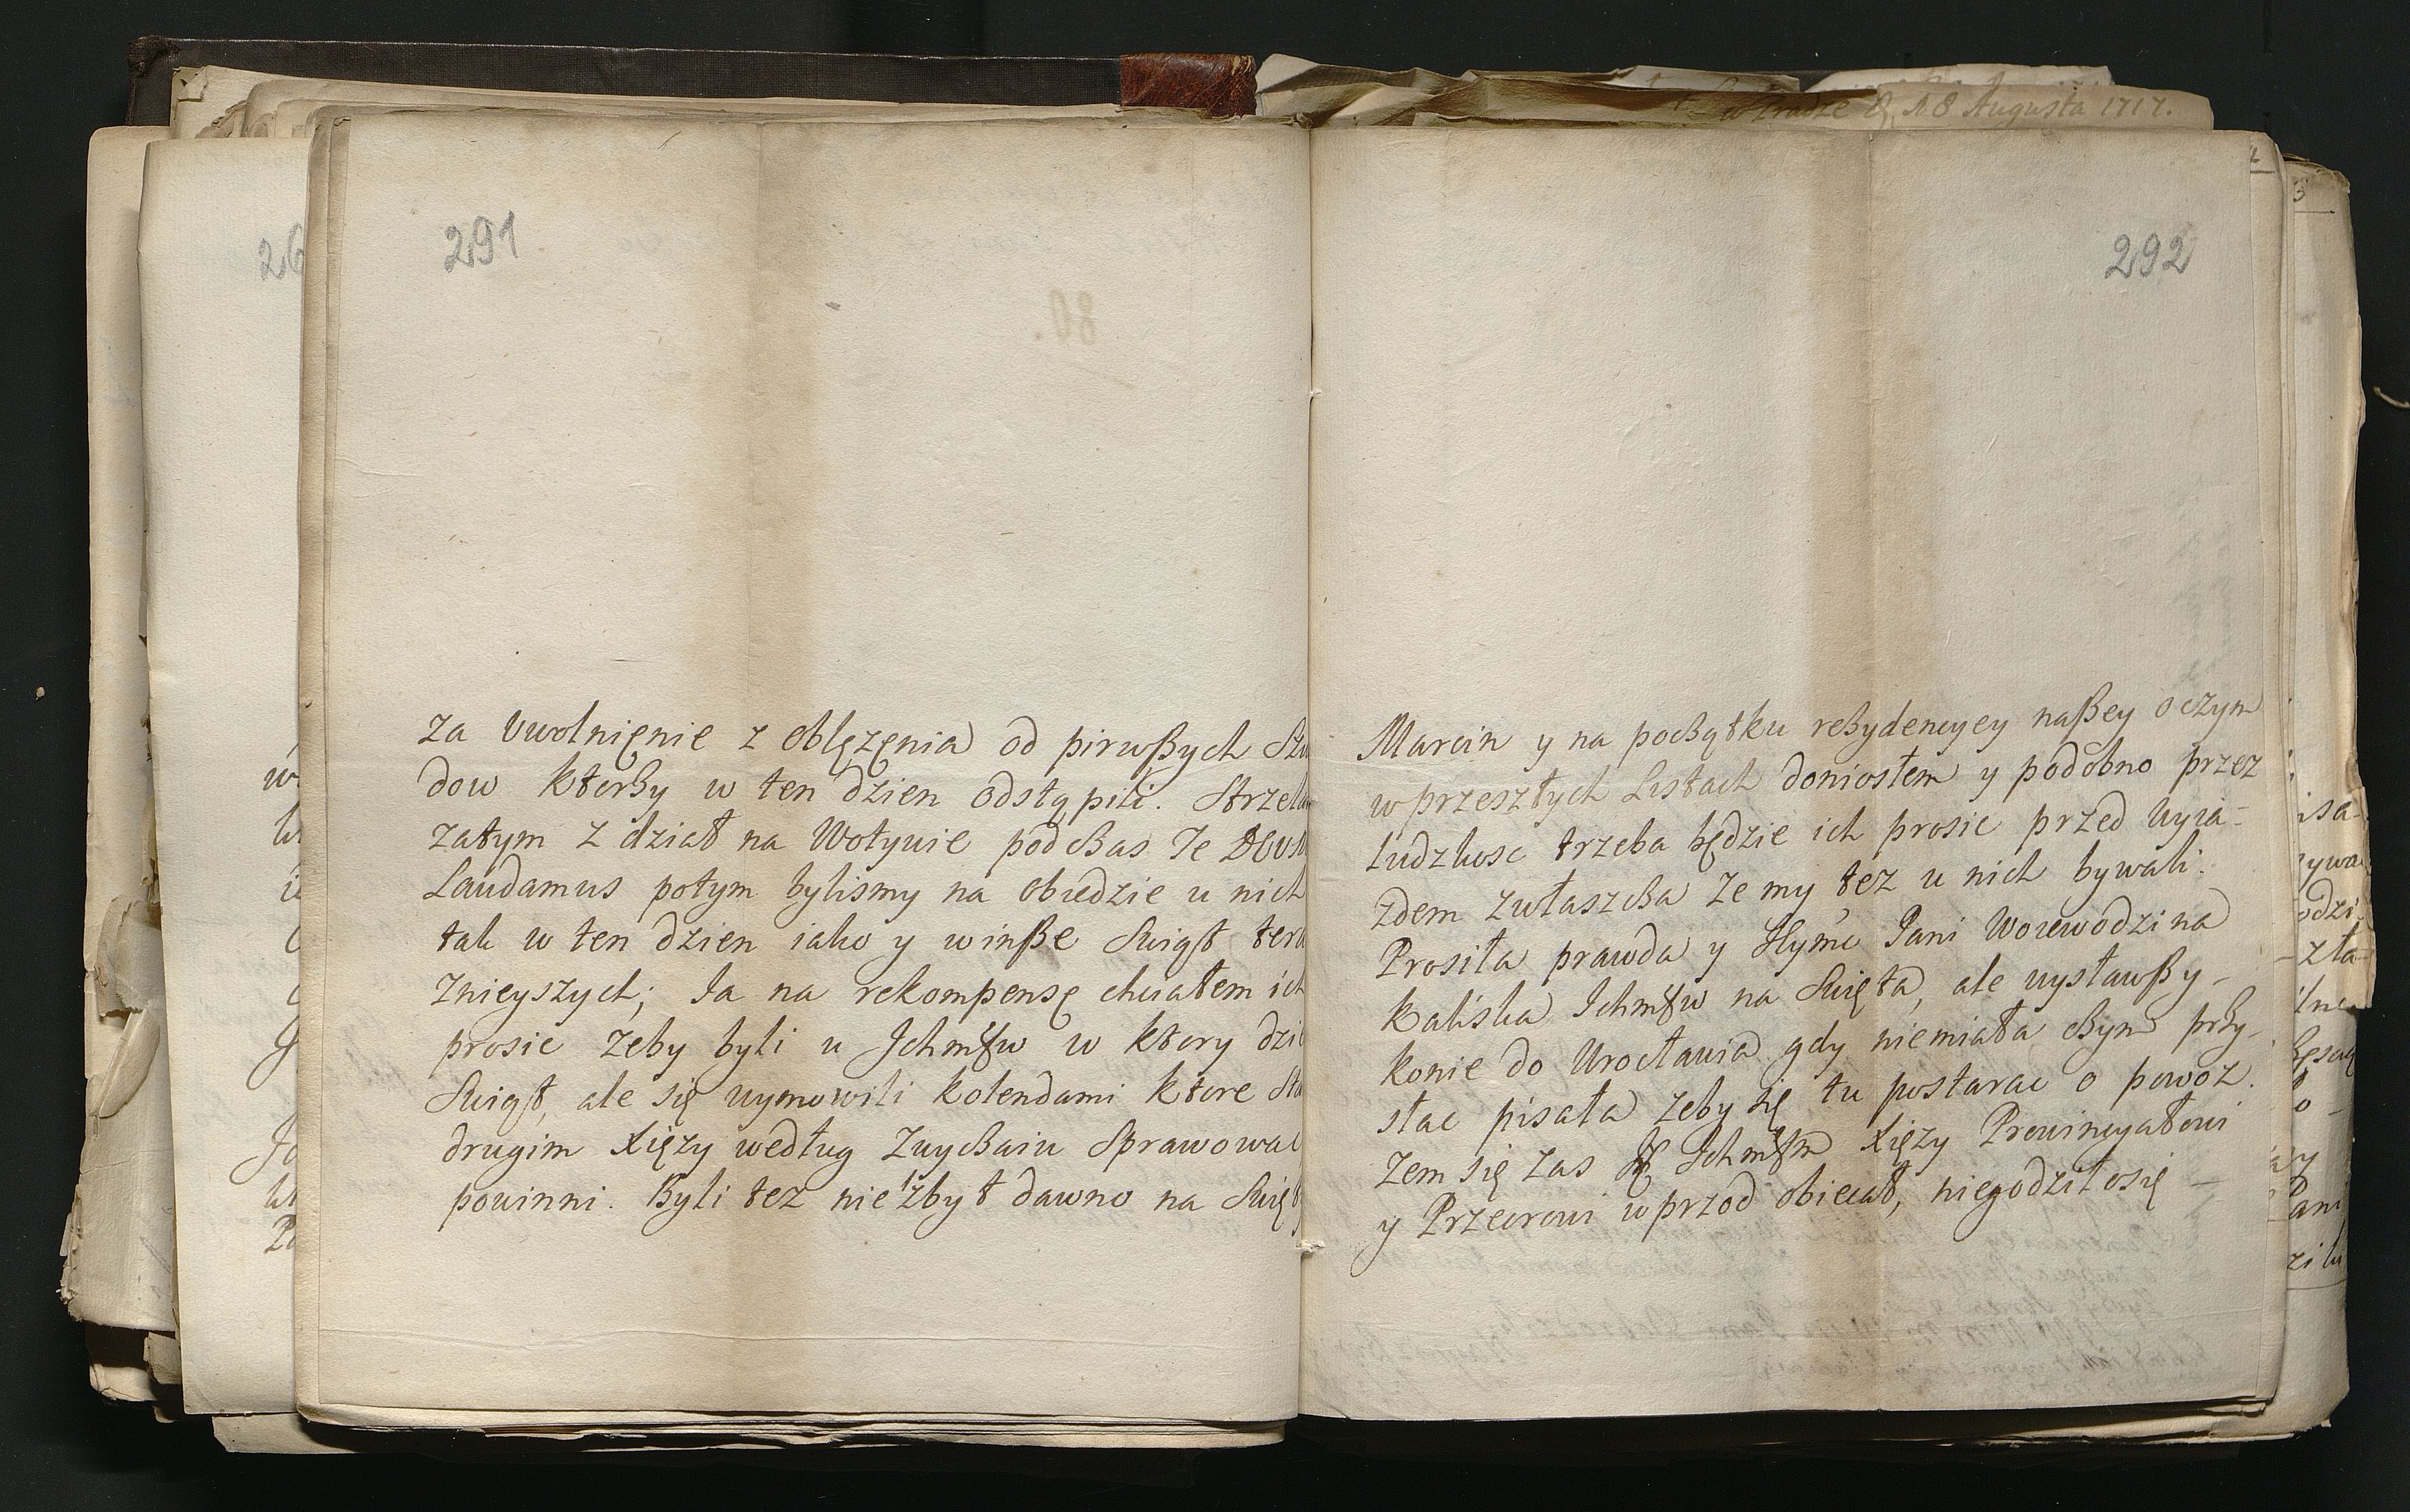 291
za Uwolnięnie z oblęzęnia od pirwßych Szw
dow ktorzy w ten dzien odstąpili. Strzela
zatym z dział na Wotywie podczas Te Deum
Laudamus potym bylismy na obiedzie u nich
tak w ten dzien iako y w inße Swiąt tera
znieyszych; Ja na rekompensę chciałem ich
prosic zeby byli u Jchmsćw w ktory dzie
Swiąt, ale się wymowili kolendami ktore
drugim Xięzy według Zwyczaiu Sprawowac
powinni. Byli tez niezbyt dawno na Swięty
292
Marcin y na początku rezydencyey naßey o czym
w przeszłych Listach doniosłem y podobno przez
ludzkosc trzeba będzie ich prosic przed wyia-
zdem zwłaszcza ze my tez u nich bywali.
Prosiła prawda y Jeymć Pani Woiewodzina
Kaliska Jchmsćw na Swięta, ale wysławßy-
konie do Wrocławia gdy niemiała czym przy-
słac pisała zeby się tu postarac o powoz.
zem się zas Jchmsćm Xięzy Prowincyałowi
y Przeorowi w przod obiecał, niegodziło się -
w Pradze 18 Augusta 1717.